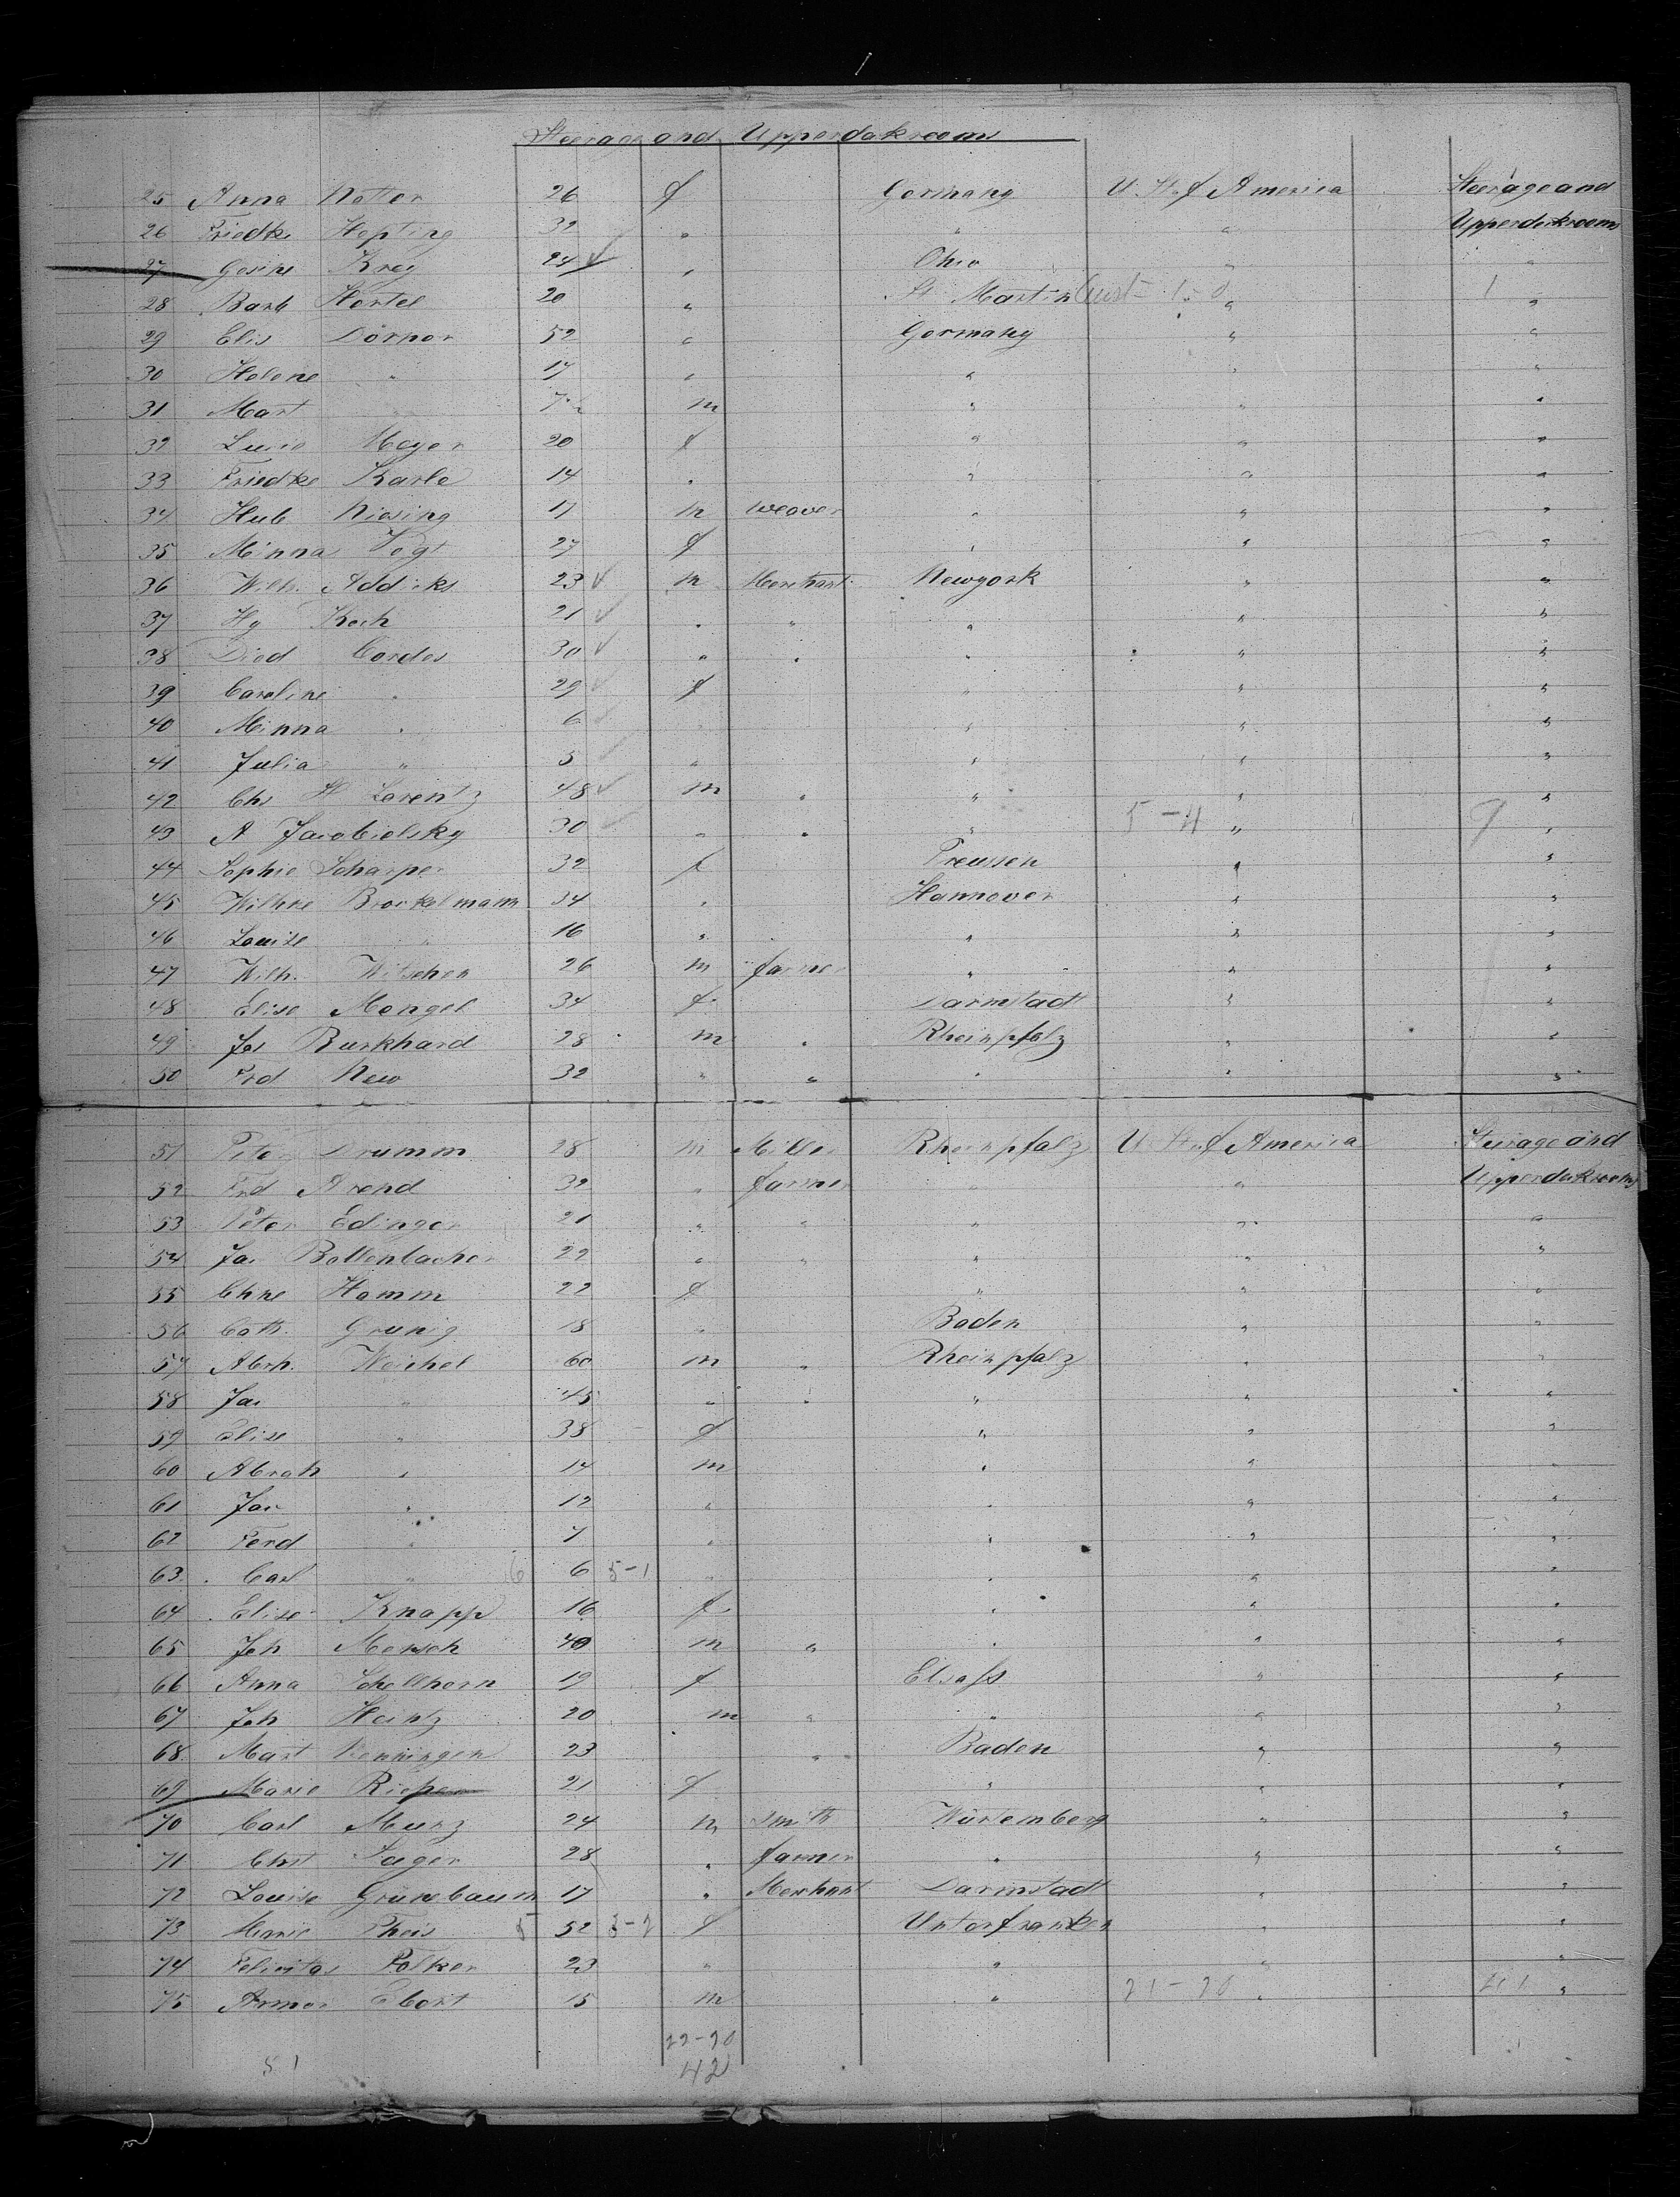 Steerage and Upperdekrooms
25 Anna Notter 26 f Germany U. St. of America Steerage and
26 Friedke Hepting 32 " " " Upperdekrooms
27 Gesine Krey 24 " Ohio " "
28 Barb Hertel 20 " St Martin Aust 1-0 " 1 "
29 Elis Dörner 52 " Germany " "
30 Helene " 17 " " " "
31 Mart " 7 m " " "
32 Luise Meyer 20 f " " "
33 Friedke Karle 14 " " " "
34 Hub Niesing 17 m weaver " " "
35 Minna Vogt 27 f " " "
36 Wilh. Addiks 23 m Merchant Newyork " "
37 Hy Koch 21 " " " " "
38 Died Cordes 30 " " " " "
39 Caroline " 29 f " " "
40 Minna " 6 " " " "
41 Julia " 5 " " " "
42 Chs H Lorentz 48 m " " " "
43 A Jacobielsky 30 " " " 5-4 " 9 "
44 Sophie Scharper 32 f Preussen " "
45 Wilhne Brockelmann 34 " Hannover " "
46 Louise " 16 " " " "
47 Wilh. Witschen 26 m farmer " " "
48 Elise Mengel 34 f Darmstadt " "
49 Jos Burkhard 28 m " Rheinpfalz " "
50 Frd New 32 " " " " "
51 Peter Drumm 28 m Miller Rheinpfalz U. St. of America Steerage and
52 Frd Arend 32 " farmer " " Upperdekrooms
53 Peter Edinger 21 " " " " "
54 Jac Bollenbacher 22 " " " " "
55 Chne Hamm 22 f " " "
56 Cath. Grunig 18 " Baden " "
57 Abrh. Weichel 60 m " Rheinpfalz " "
58 Jac " 45 " " " " "
59 Elise " 38 f " " "
60 Abrah " 14 m " " "
61 Jac " 12 " " " "
62 Ferd " 7 " " " "
63 Carl " 6 6 5-1 " " " "
64 Elise Knapp 16 f " " "
65 Joh Mersch 40 m " " " "
66 Anna Schellhorn 19 f Elsaß " "
67 Joh Heintz 20 m " " " "
68 Mart Henningen 23 " Baden " "
69 Marie Rieper 21 f " " "
70 Carl Munz 24 m Smith Würtemberg " "
71 Chrst Sager 28 " farmer " " "
72 Louise Grünebaum 17 " Merchant Darmstadt " "
73 Marie Theis 5 52 3-2 f Unterfranken " "
74 Felicitas Polker 23 " " " "
75 Ebert 15 m " 21-20 " 41 "
22-20
51 42